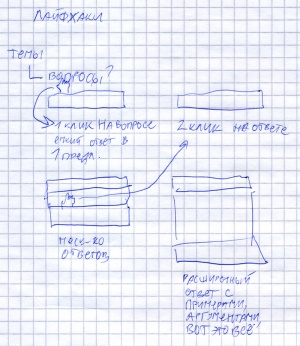 ЛАЙФХАКИ
ТЕМЫ
ВОПРОСЫ?
1 КЛИК НА ВОПРОСЕ
ответ в
1 предл.
2 КЛИК НА ОТВЕТЕ
ОТВЕТОВ
РАСШИРЕННЫЙ
ОТВЕТ С
ПРИМЕРАМИ,
АРГУМЕНТАМИ,
ВОТ ЭТО ВСЁ,